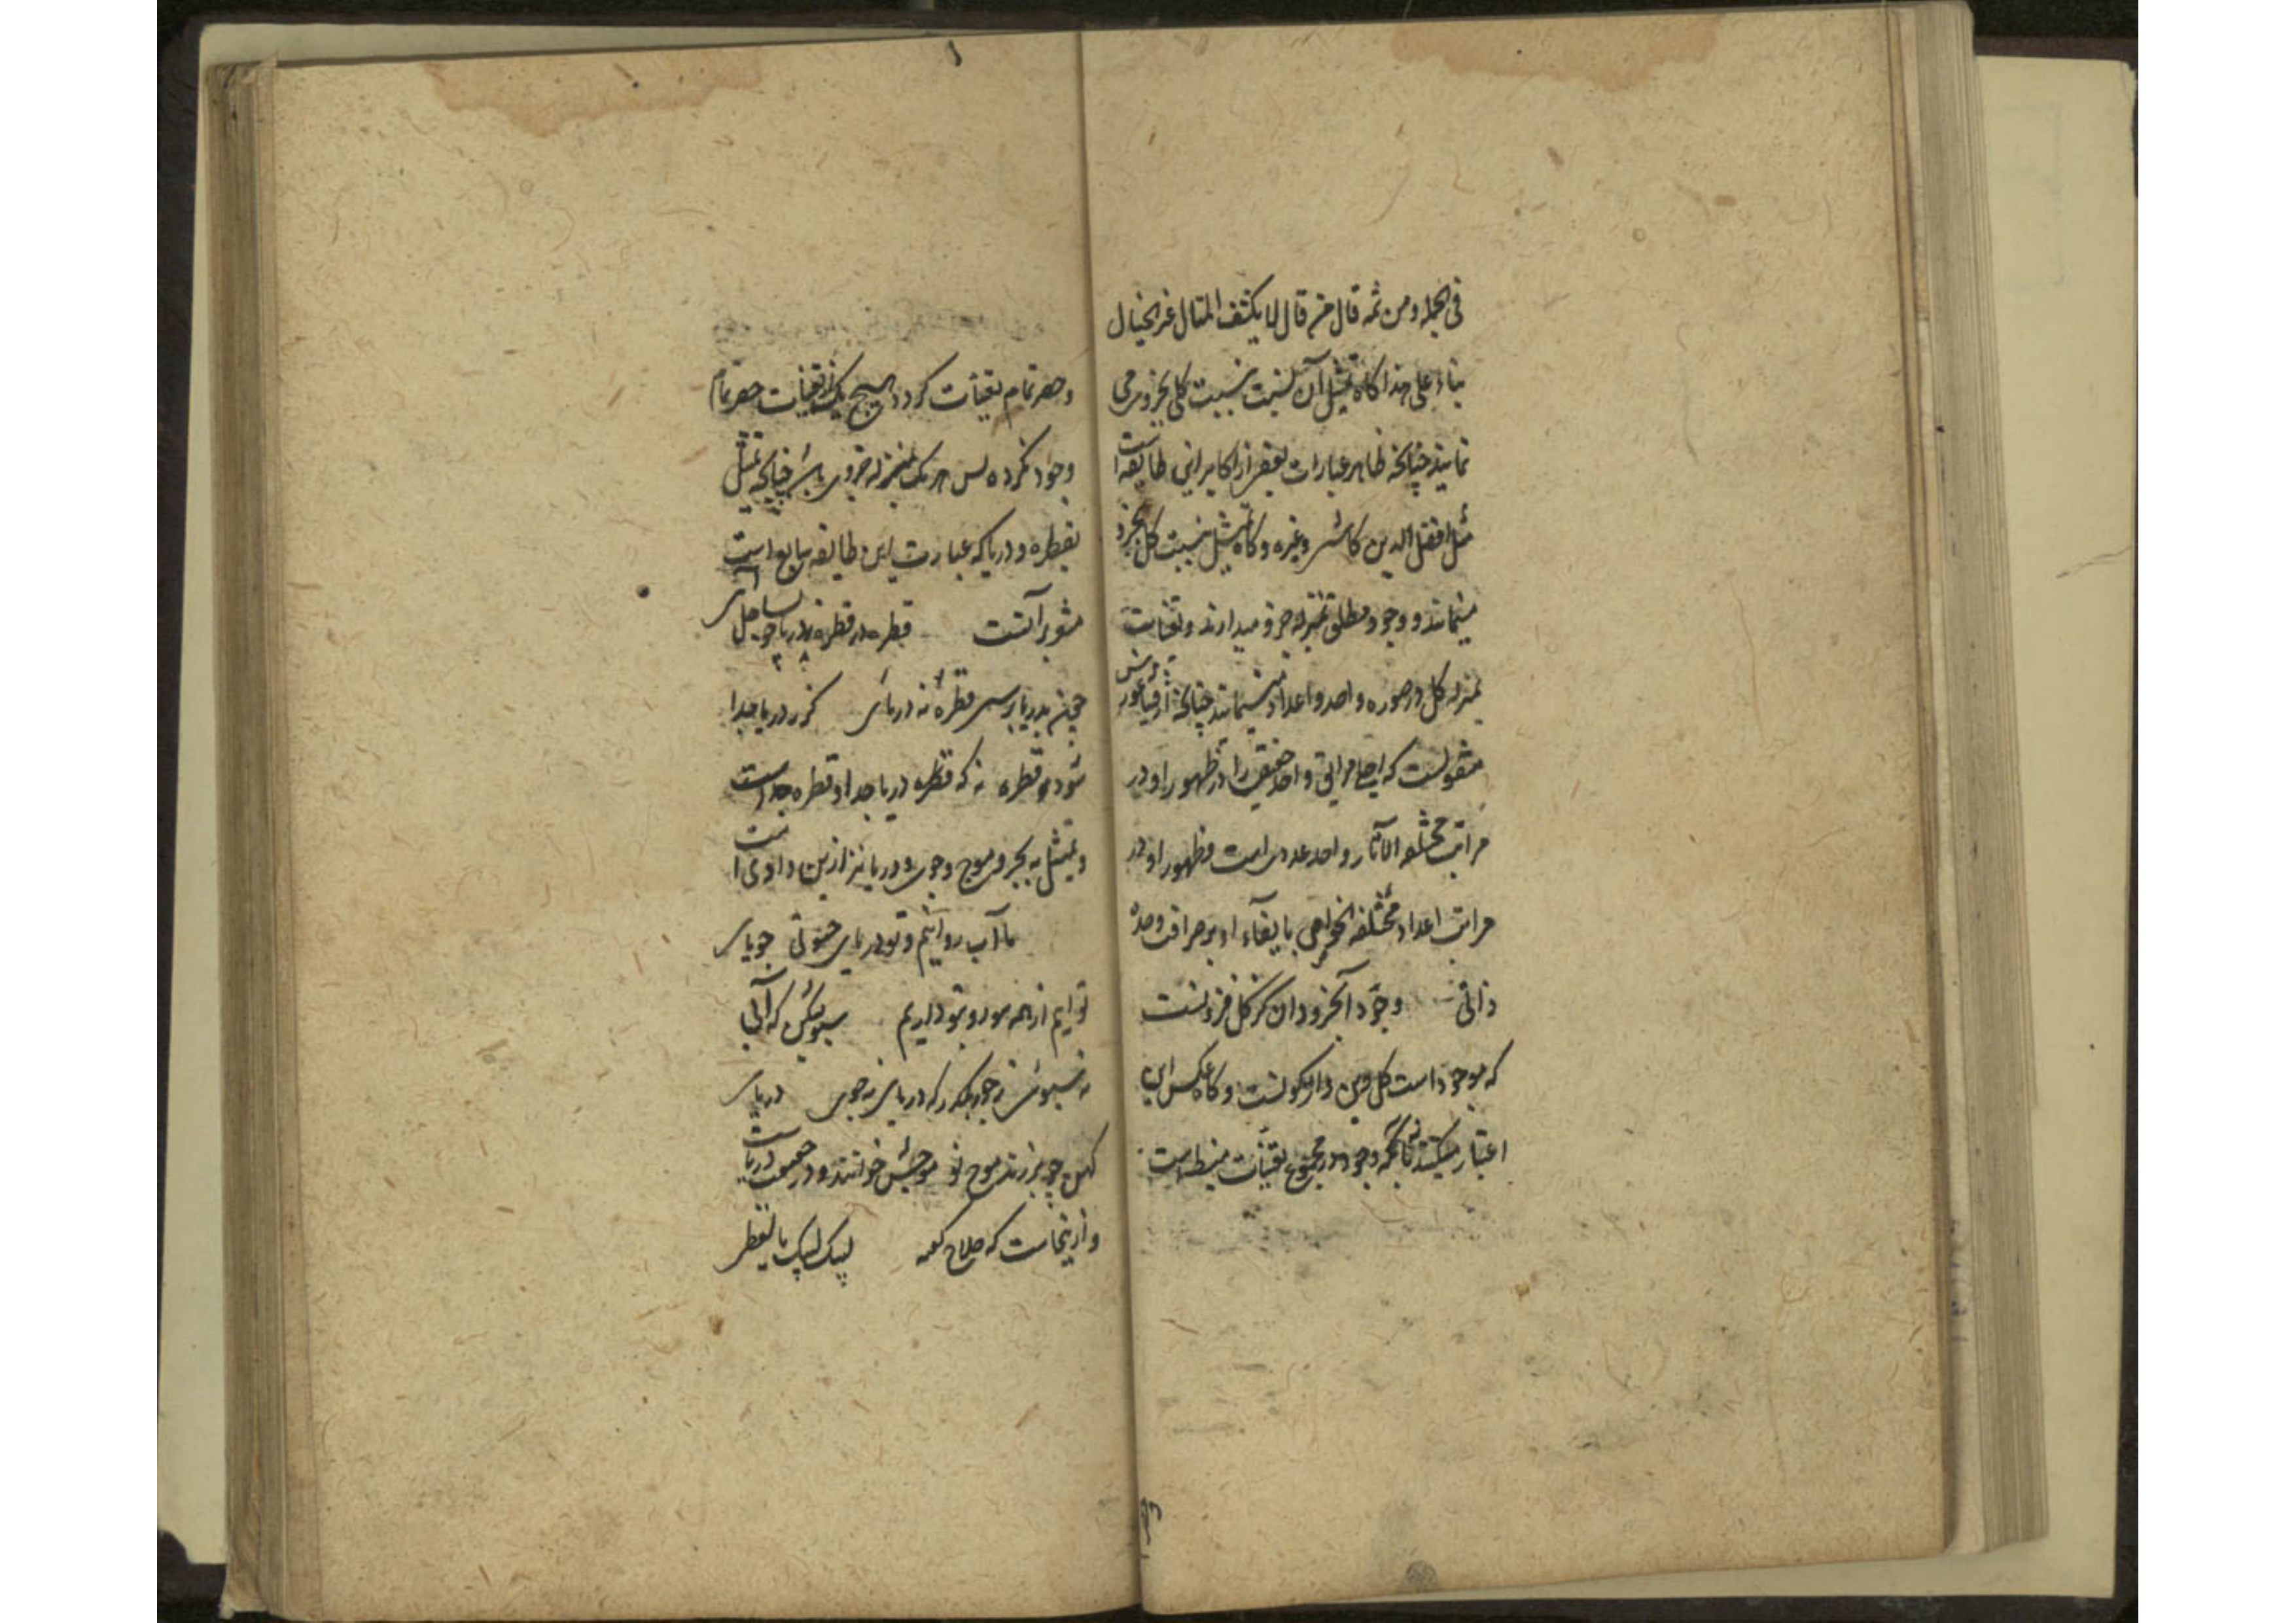 فی الجمله ومن ثمه قال من قال لا یکشف المثال غیر الخیال
بناء علی هذا کاه تمثیل آن نسبت بنسبت کلی بجزو می
نمایند چنانچه ظاهر عبارات بعضی از اکابر این طایفه است
مثل افضل الدین کاشی وغیره وکاه تمثیل بنسبت کل بجزو
مینمایند و وجود مطلق بمنزله جزو میدارند و تعینات
بمنزله کل در صوره واحد و اعداد مینمایند چنانچه از فیثاغورس
منقولست که واحد حقیقی را در ظهور او در
مراتب مختلفه الآثار واحد عددی است وظهور او در
مراتب اعداد مختلفه الخواص با بقاء او بر صرافت وحده
ذاتی وجود آن جزو دان کز کل فزونست
که موجود است کل وین واژکونست وکاه عکس این
اعتبار میکنند بآنکه وجود در مجموع تعینات منبسط است
وحصر تمام تعینات کرده هیچ یک از تعینات حصر تمام
وجود نکرده پس هر یک بمنزله جزوی باشد چنانچه تمثیل
بقطره و دریا که عبارت این طایفه شایع است
مشعر برآنست قطره در قطره
چون بدریا برسی قطره نه دریائی کز دریا جدا
شود قطره نه که قطره دریا جدا و قطره جداست
وتمثیل به بحر و موج وجوی و دریا نیز ازین وادی است
ما آب روانیم و تو دریای خوشی جویای
توایم از همه سو رو بتو داریم سبوئیش که آبی
نه سبوئی نه جو بنگر که دریای نه جوی دریای
کهن چو برزند موج نو موجش خوانند و در حقیقت دریاست
و از اینجاست که حلاج کوید لبیک لبیک یا